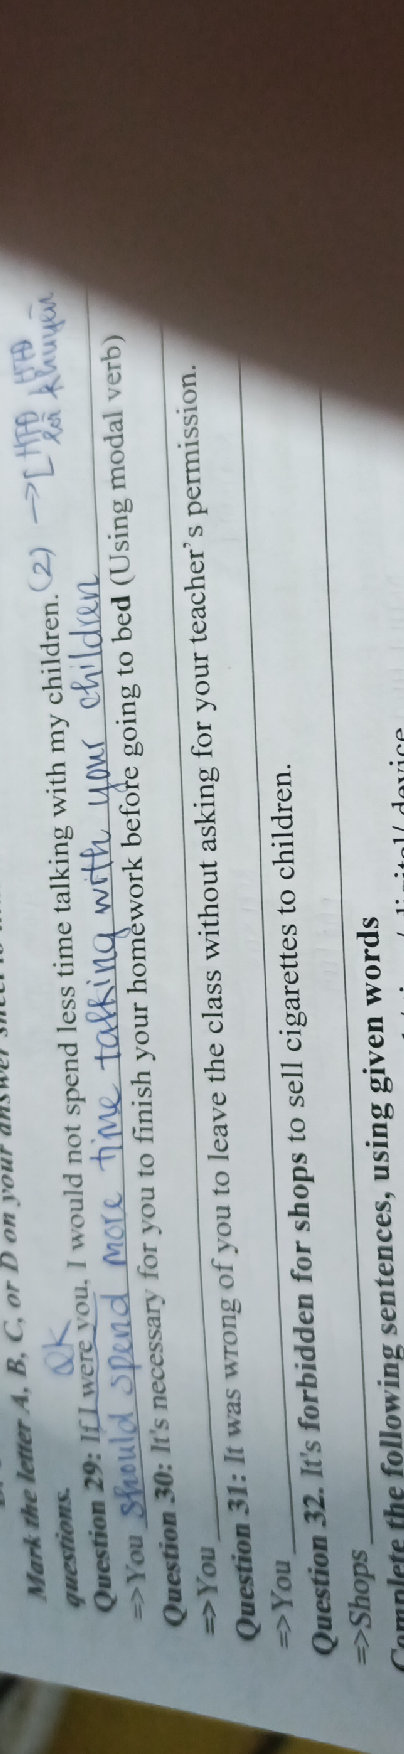 Mark the letter A, B, C, or D on your answer
questions.
QK
Question 29: If I were you, I would not spend less time talking with my children. (2) →
lời khuyên
=>You should spend more time talking with your children
Question 30: It's necessary for you to finish your homework before going to bed (Using modal verb)
=>You
Question 31: It was wrong of you to leave the class without asking for your teacher's permission.
=>You
Question 32. It's forbidden for shops to sell cigarettes to children.
=>Shops
Complete the following sentences, using given words
device